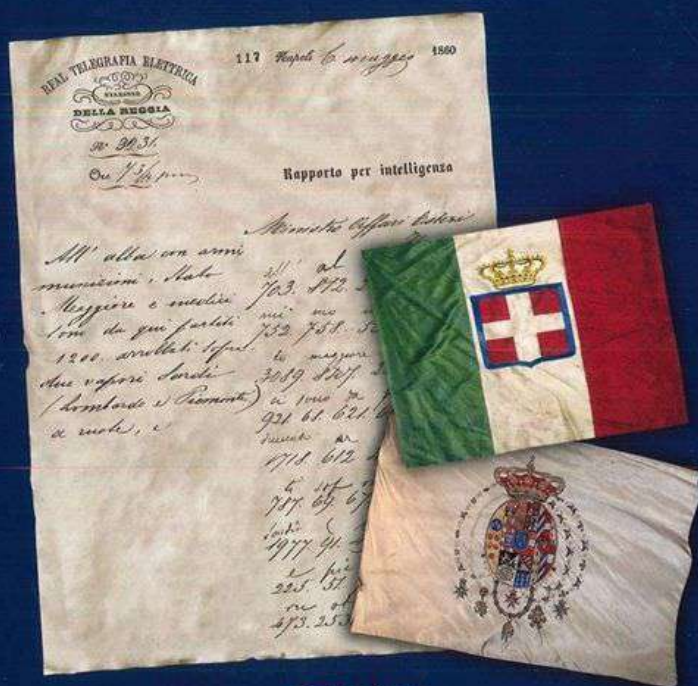 REAL TELEGRAFIA ELETTRICA
STAZIONE
DELLA REGGIA
Ore 7 3/4 pm
117 Napoli 6 maggio 1860
Rapporto per intelligenza
Ministro Affari Esteri
All' alba con armi
munizioni, Stato
Maggiore e medici
sono da qui partiti
1200 arrollati sopra
due vapori Sardi
(Lombardo e Piemonte)
a ruote, e
all' al
703. 872.
752 758.
to maggiore
3089
ci sono
921 61. 621.
1718 612
ti sof
787. 69. 67
sardi
1977 91.
e pie
225. 57.
473. 253